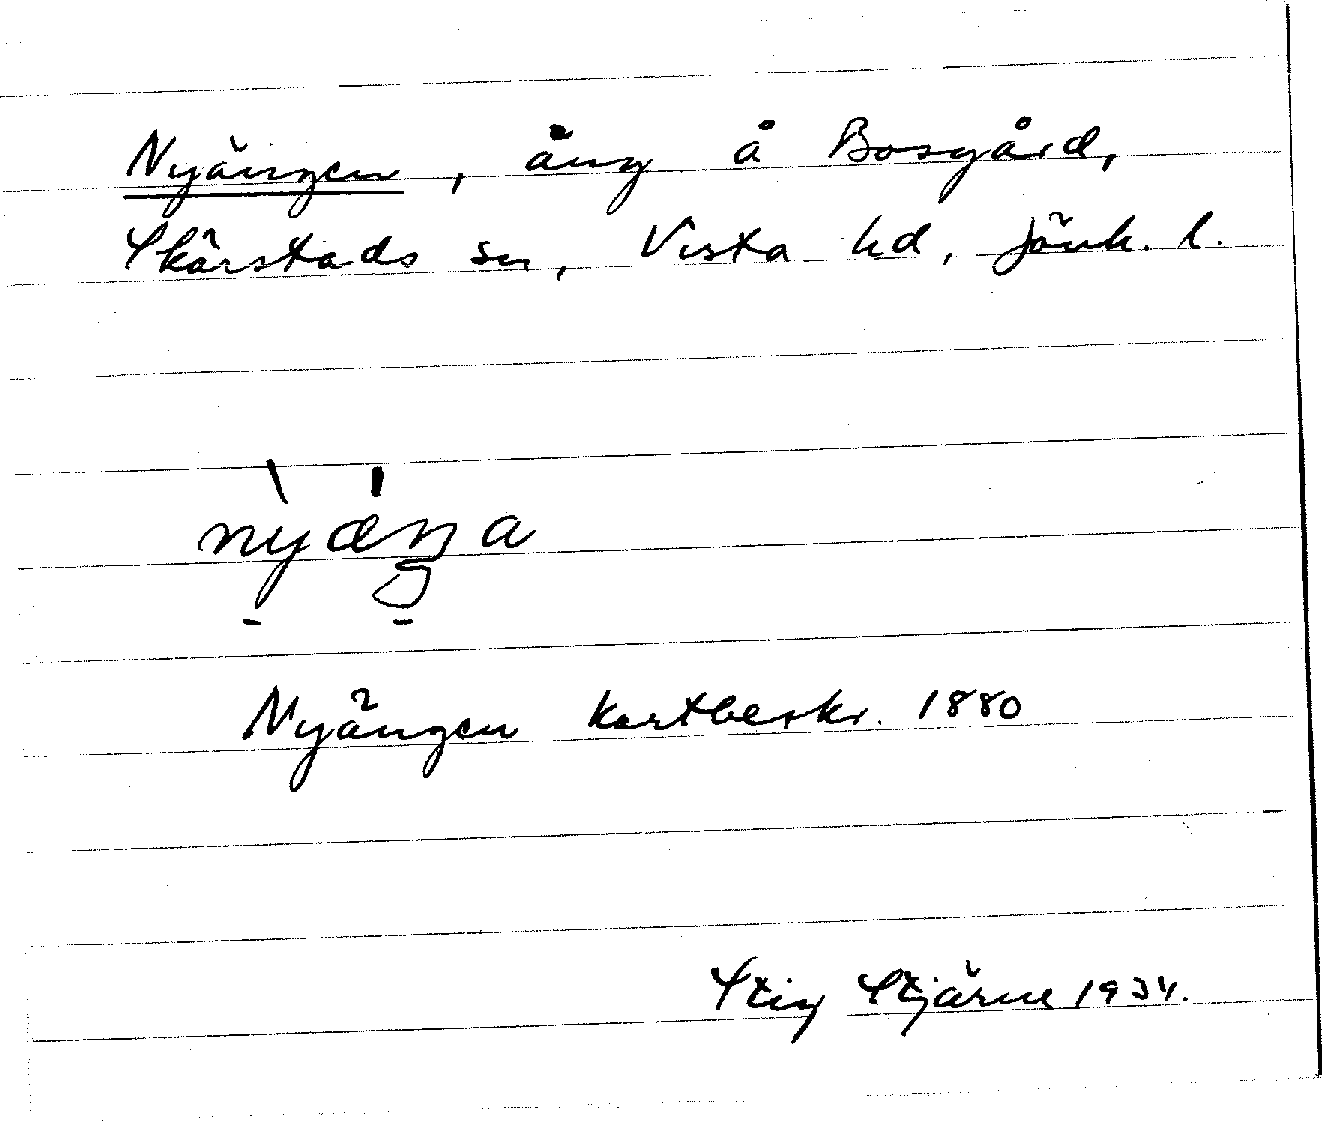 Nyängen, äng å Bosgård,
Skärstads sn, Vista hd, Jönk. l.
nỳæ̍ŋa
Nyängen kartbeskr. 1880
Stig Stjärne 1934.